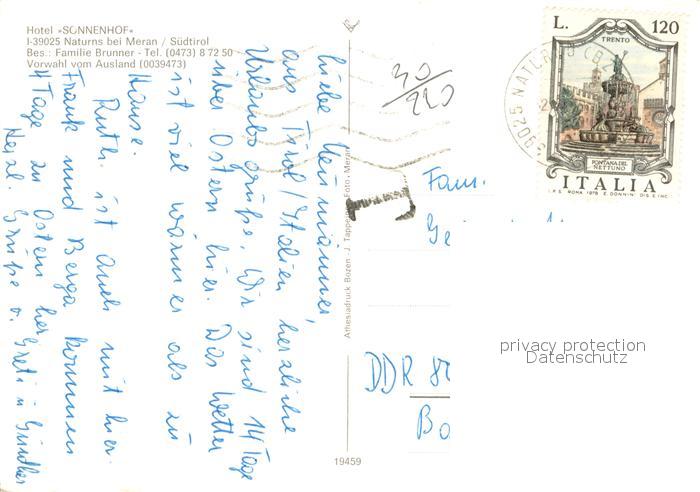 Hotel »SONNENHOF«
I-39025 Naturns bei Meran / Südtirol
Bes.: Familie Brunner - Tel. (0473) 8 72 50
Vorwahl vom Ausland (0039473)
liebe
aus Tirol/Italien herzliche
Urlaubsgrüße. Wir sind 14 Tage
über Ostern hier. Das Wetter
ist viel wärmer als zu
Hause.
Ruth ist auch mit hier.
Frank und Berga kommen
4 Tage zu Ostern her.
Herzl. Grüße v. Greti u. Günther
Athesiadruck Bozen - J. Tappeiner, Foto, Meran
19459
30/220
T
Fam.
Ge
DDR 80
Bo
L. 120
TRENTO
FONTANA DEL
NETTUNO
ITALIA
I.P.S. ROMA 1978 E. DONNINI DIS. E INC.
39025 NATURNS (B
privacy protection
Datenschutz